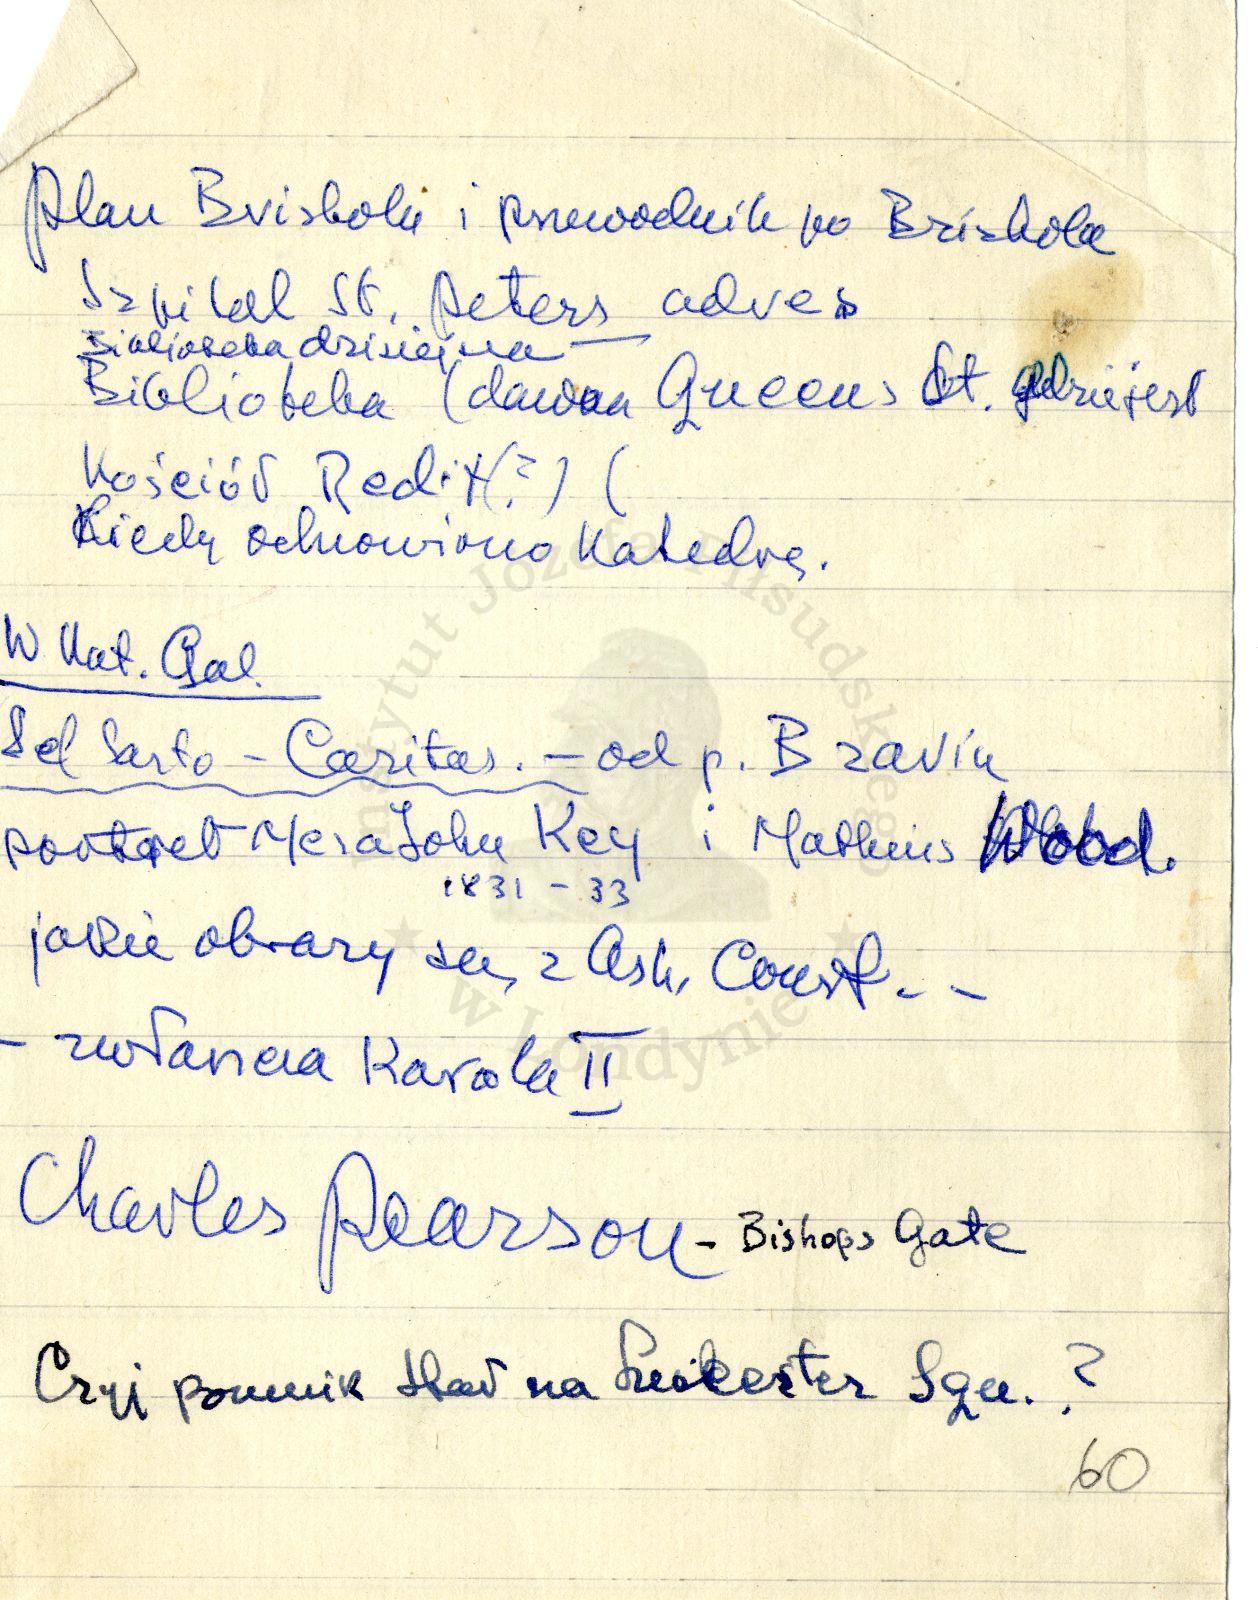 Plan Bristolu i przewodnik po Bristolu
Szpital St. Peters adres
Biblioteka dzisiejsza
Biblioteka (dawna Queens St. gdzie jest
Kościół Redi (?) (
Kiedy odnowiono Katedrę.
W Nat. Gal.
Del Sarto - Caritas. - od p. Bravin
portret Mera John Key i Mathius Wood.
1831 - 33
jakie obrazy są z Ash. Court. - -
- zwłaszcza Karola II
Charles Pearson - Bishops Gate
Czyj pomnik stał na Leicester Squ. ?
60
Instytut Józefa Piłsudskiego
w Londynie